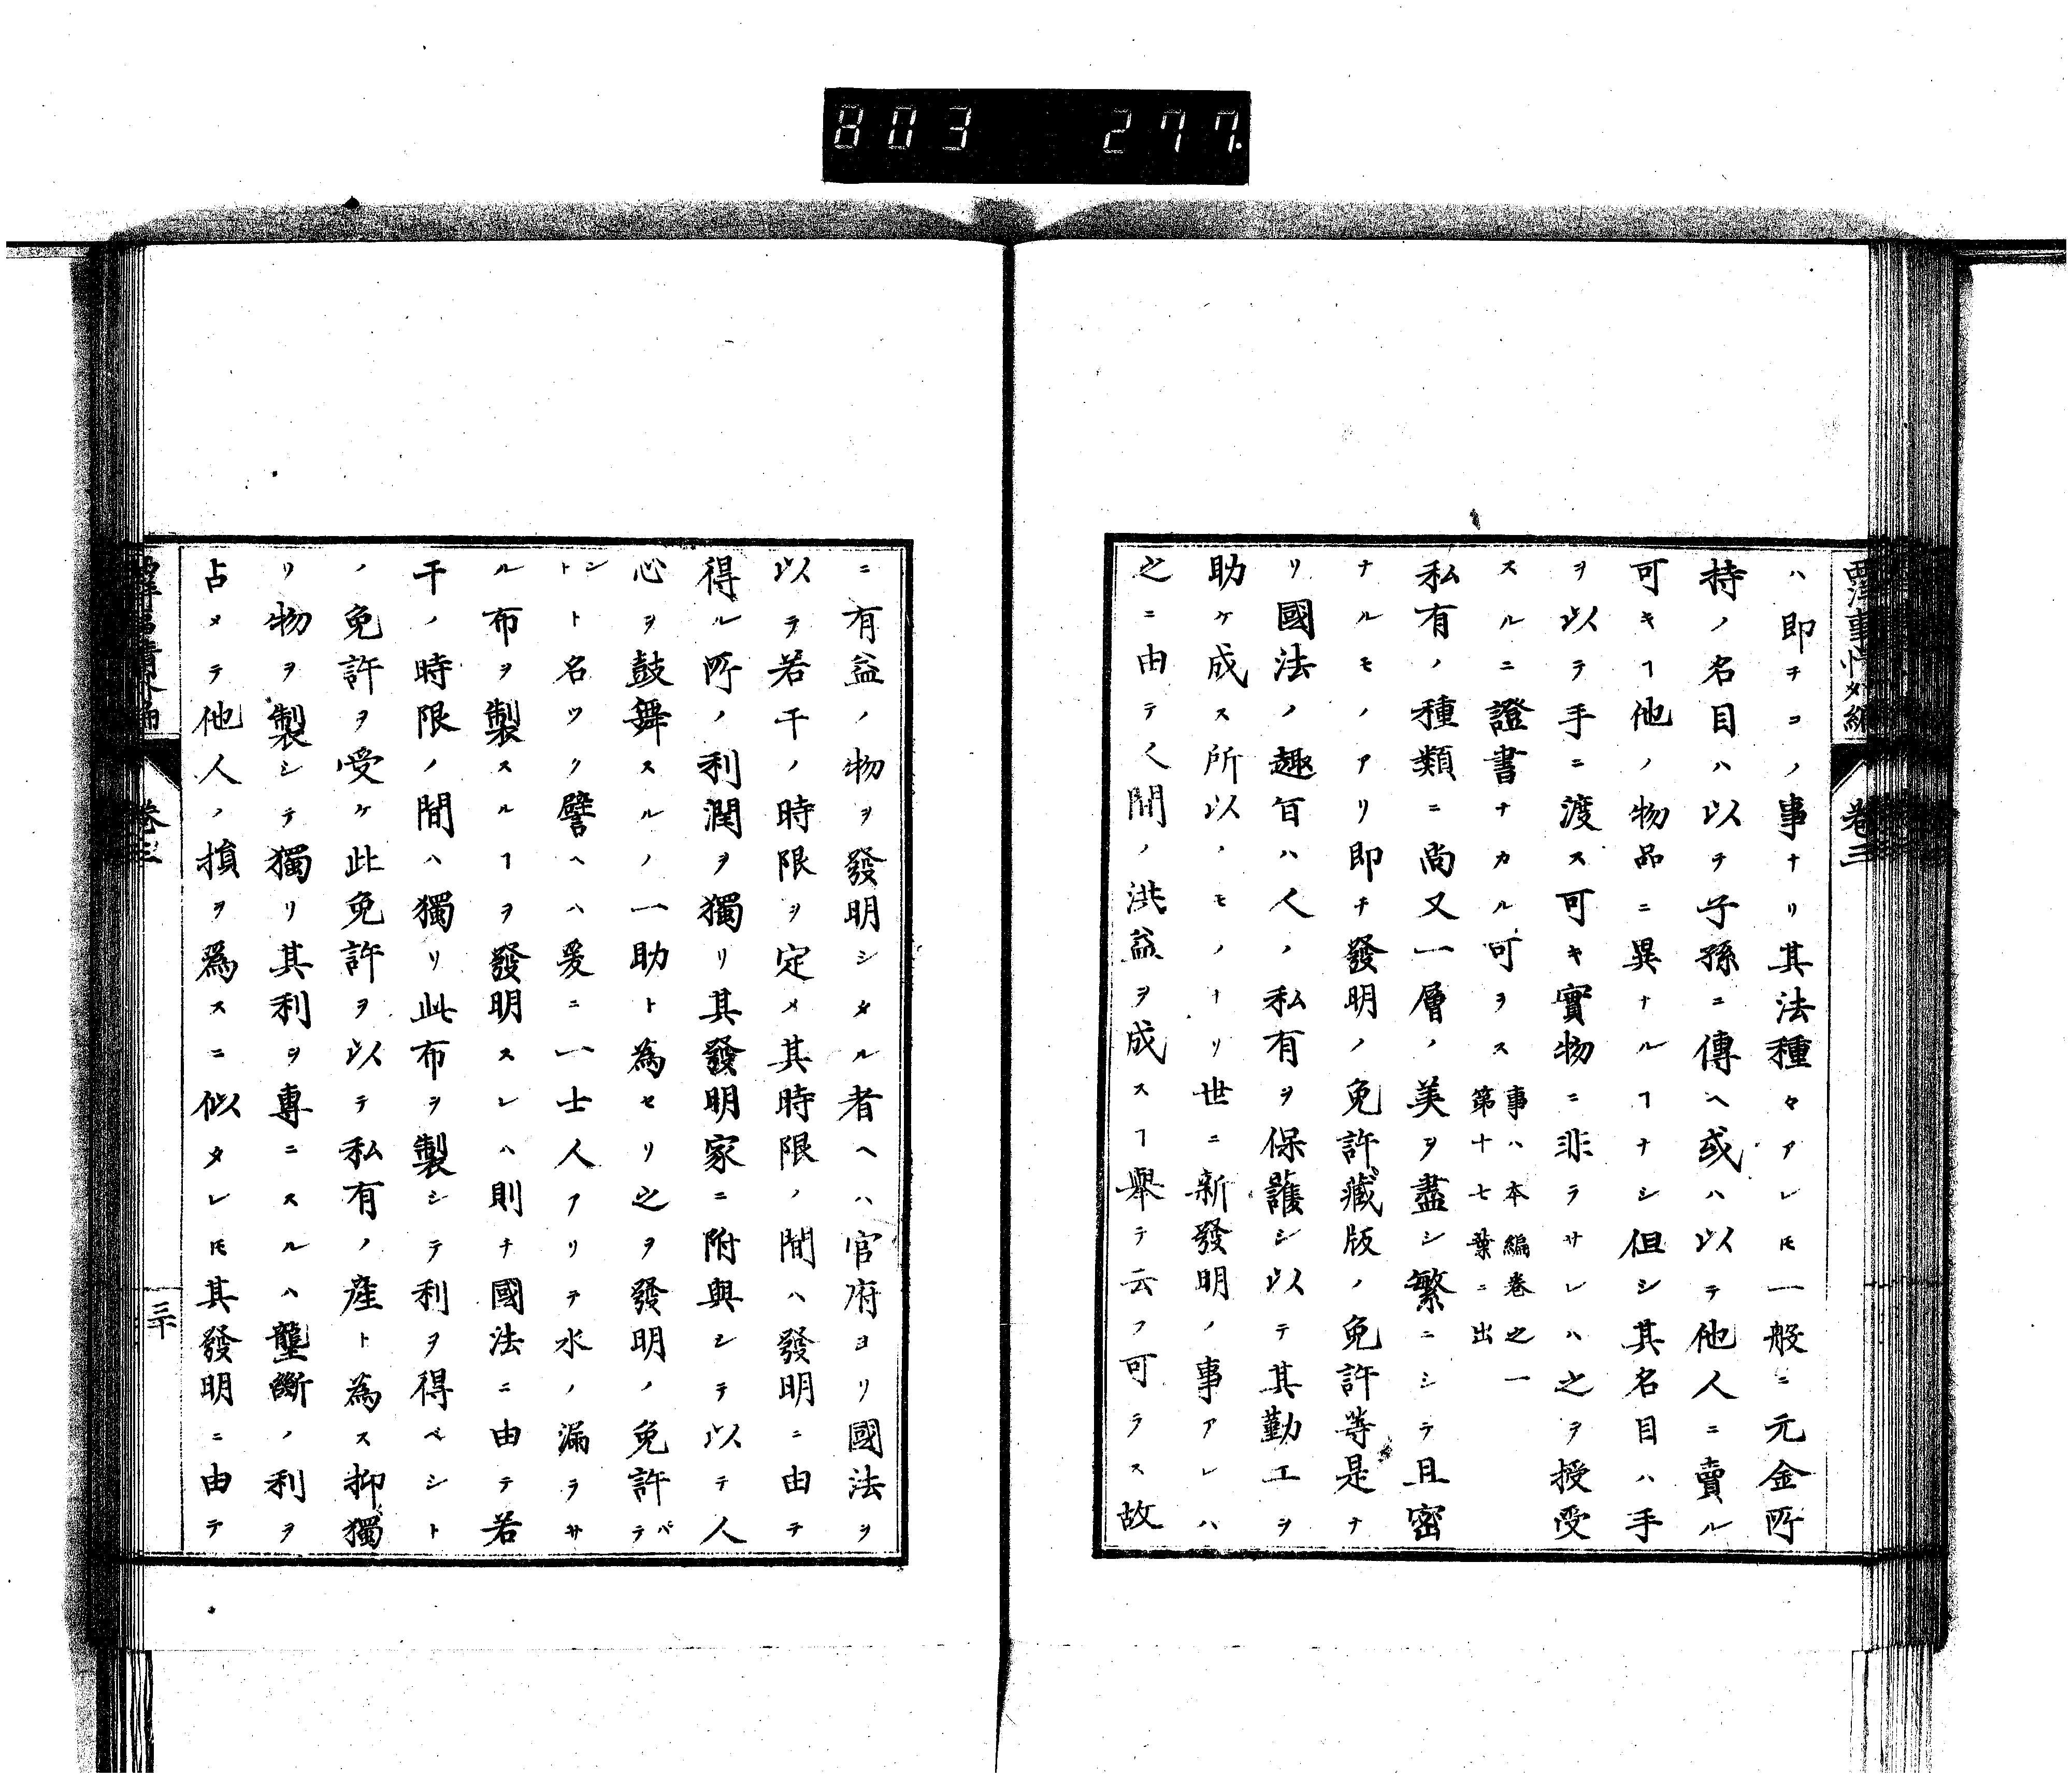 803 277.
西洋事情外編
卷三
ハ即チコノ事ナリ其法種々アレヒ一般ニ元金所
持ノ名目ハ以テ子孫ニ傳ヘ或ハ以テ他人ニ賣ル
可キヿ他ノ物品ニ異ナルヿナシ但シ其名目ハ手
ヲ以テ手ニ渡ス可キ實物ニ非ラサレハ之ヲ授受
スルニ證書ナカル可ヲス事ハ本編卷之一
第十七葉ニ出
私有ノ種類ニ尚又一層ノ美ヲ盡シ繁ニシテ且密
ナルモノアリ即チ發明ノ免許藏版ノ免許等是ナ
リ國法ノ趣旨ハ人ノ私有ヲ保護シ以テ其勤工ヲ
助ケ成ス所以ノモノナリ世ニ新發明ノ事アレハ
之ニ由テ人間ノ洪益ヲ成スヿ舉テ云フ可ラス故
ニ有益ノ物ヲ發明シタル者ヘハ官府ヨリ國法ヲ
以テ若干ノ時限ヲ定メ其時限ノ間ハ發明ニ由テ
得ル所ノ利潤ヲ獨リ其發明家ニ附與シテ以テ人
心ヲ鼓舞スルノ一助ト為セリ之ヲ發明ノ免許パテ
ントト名ツク譬ヘハ爰ニ一士人アリテ水ノ漏ラサ
ル布ヲ製スルヿヲ發明スレハ則チ國法ニ由テ若
干ノ時限ノ間ハ獨リ此布ヲ製シテ利ヲ得ベシト
ノ免許ヲ受ケ此免許ヲ以テ私有ノ産ト為ス抑獨
リ物ヲ製シテ獨リ其利ヲ專ニスルハ壟斷ノ利ヲ
占メテ他人ノ損ヲ爲スニ似タレ𪜈其發明ニ由テ
卷三
三十